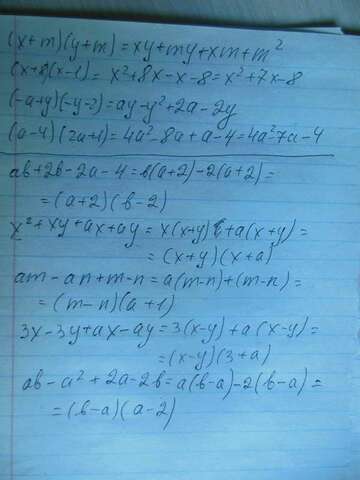 (x+m)(y+m)=xy+my+xm+m²
(x+8)(x-1)=x²+8x-x-8=x²+7x-8
(-a+y)(-y-2)=ay-y²+2a-2y
(a-4)(2a+1)=4a²-8a+a-4=4a²-7a-4
ab+2b-2a-4=b(a+2)-2(a+2)=
=(a+2)(b-2)
x²+xy+ax+ay=x(x+y)+a(x+y)=
=(x+y)(x+a)
am-an+m-n=a(m-n)+(m-n)=
=(m-n)(a+1)
3x-3y+ax-ay=3(x-y)+a(x-y)=
=(x-y)(3+a)
ab-a²+2a-2b=a(b-a)-2(b-a)=
=(b-a)(a-2)